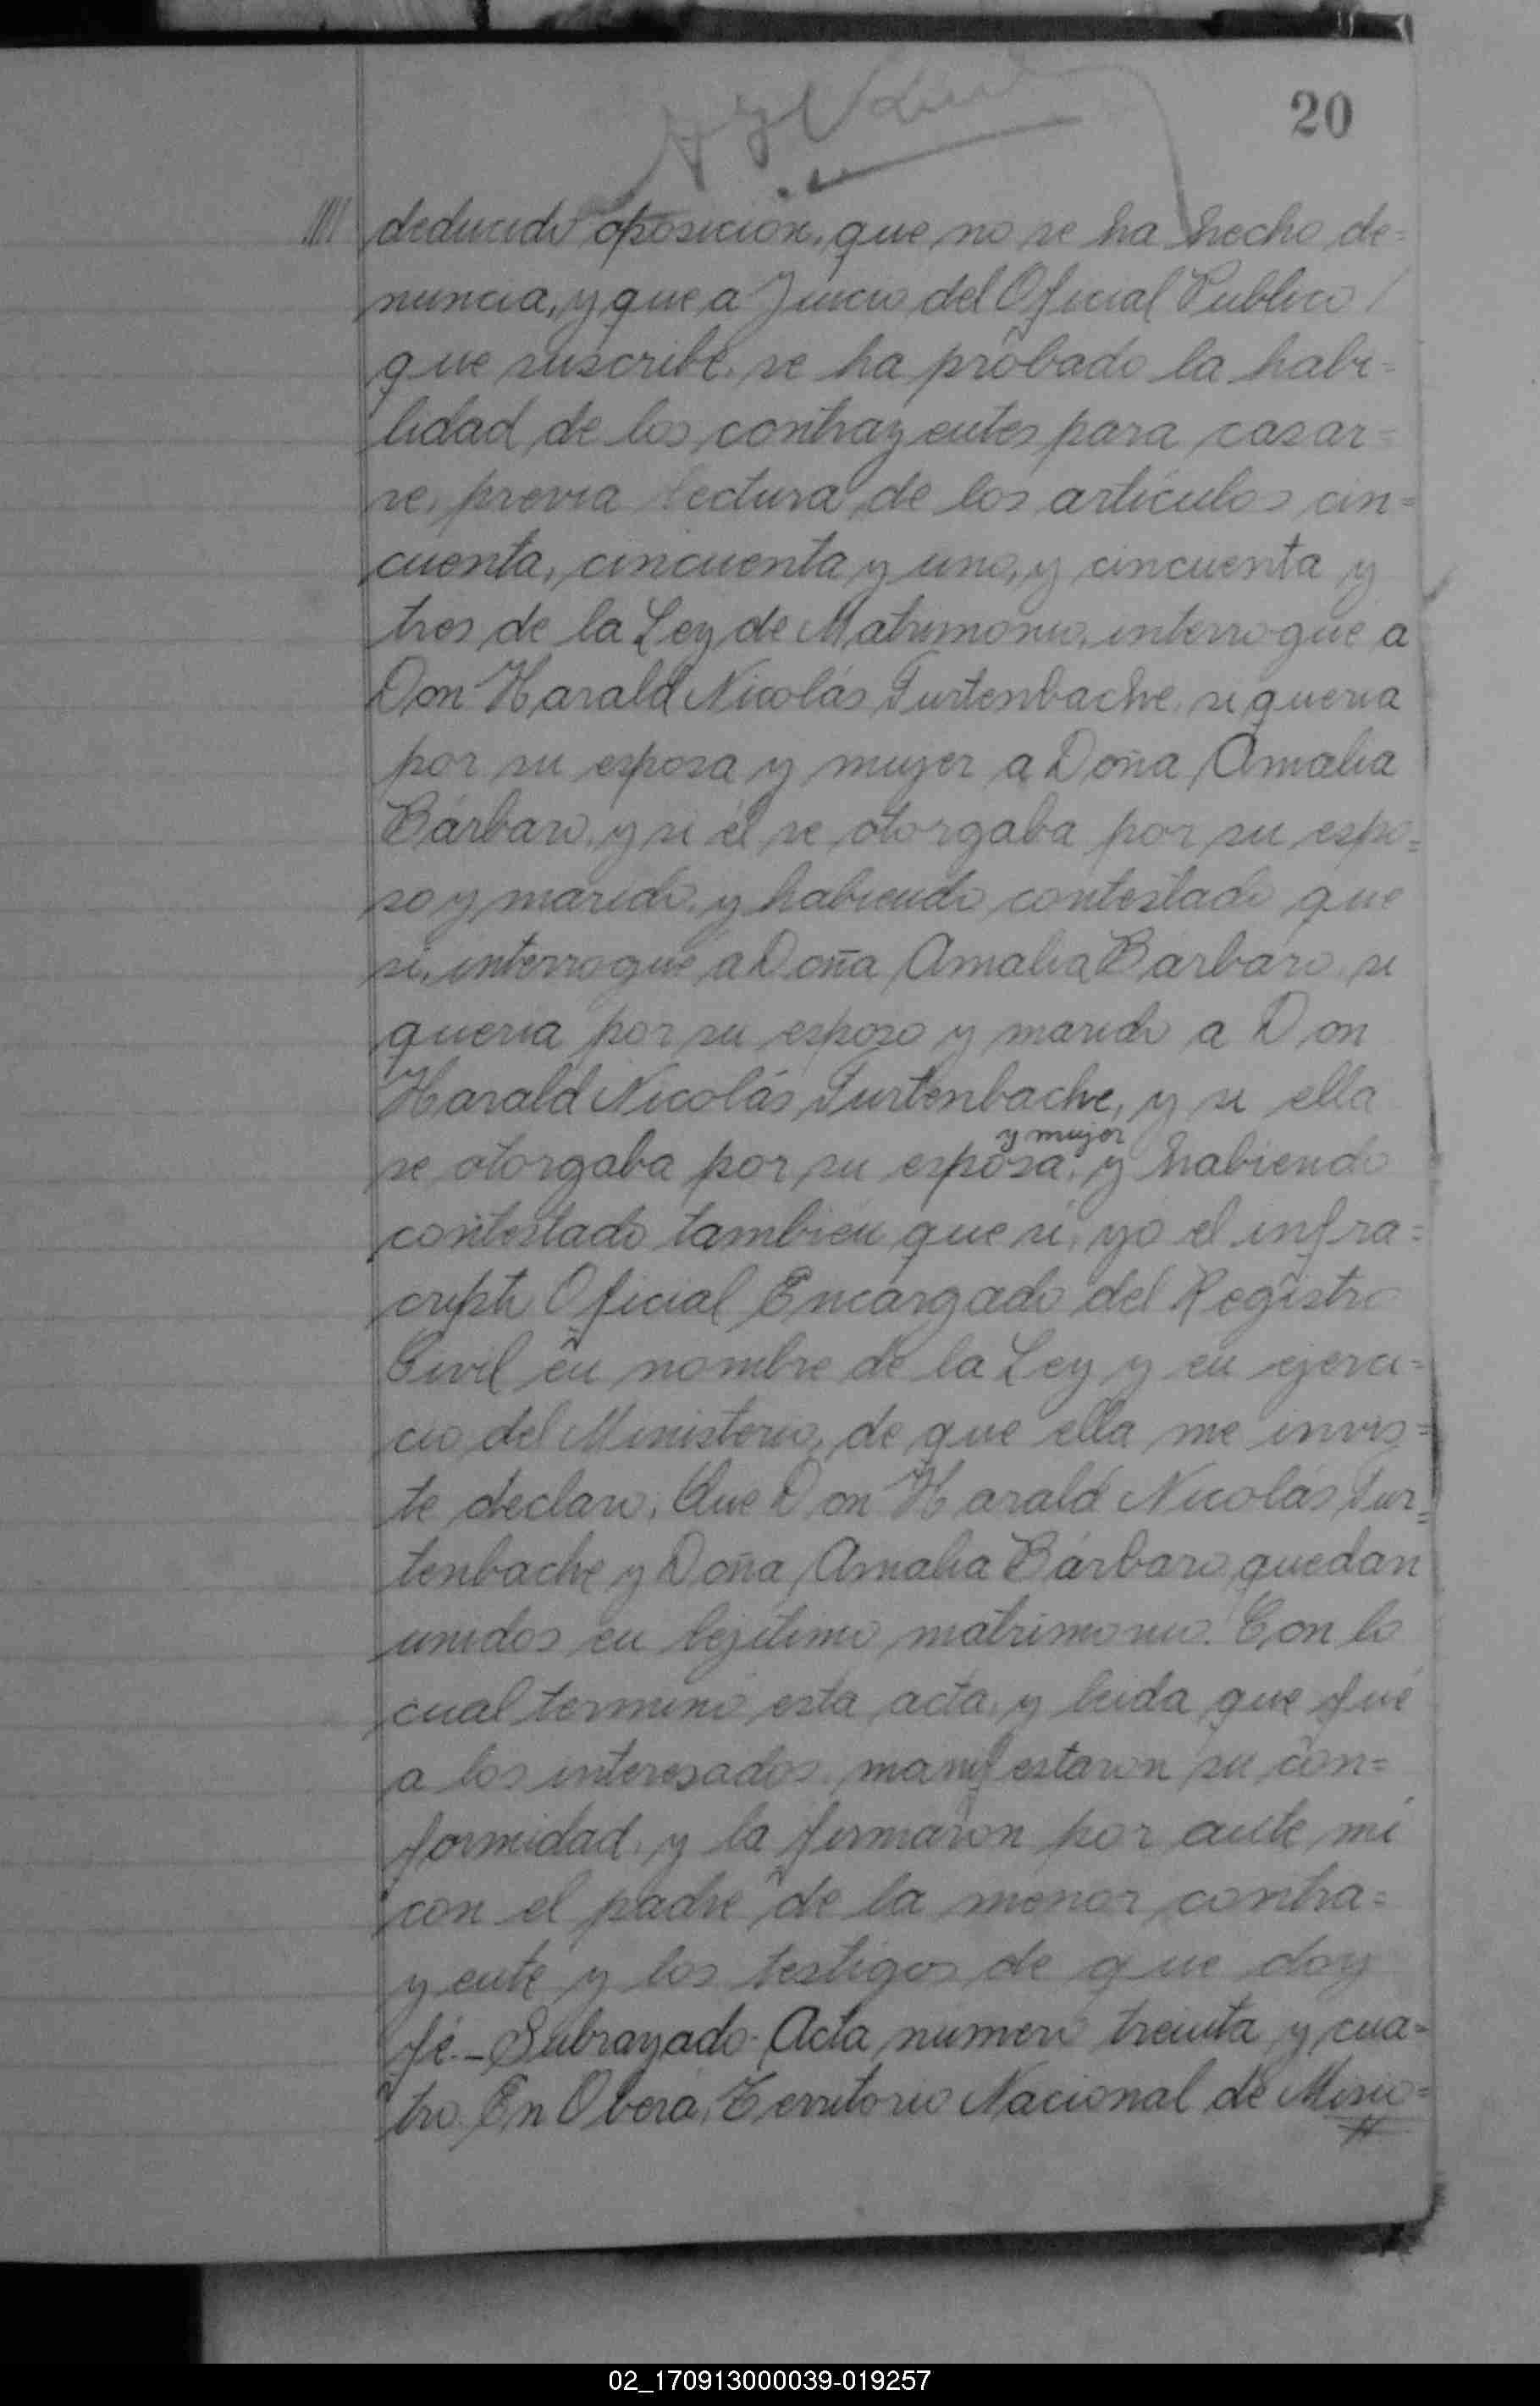 20
//// deducido oposicion, que no se ha hecho de=
nuncia, y que a Juicio del Oficial Publico /
que suscribe, se ha probado la habi=
lidad de los contrayentes para casar=
se, previa lectura de los artículos cin=
cuenta, cincuenta y uno, y cincuenta y
tres de la Ley de Matrimonio, interrogue a
Don Harald Nicolás Turtenbache, si queria
por su esposa y mujer a Doña Amalia
Bárbaro, y si él se otorgaba por su espo=
so y marido, y habiendo contestado que
si, interrogué a Doña Amalia Barbaro, si
queria por su esposo y marido a Don
Harald Nicolás Turtenbache, y si ella
y mujer
se otorgaba por su esposa, y habiendo
contestado tambien que si, yo el infra=
cripto Oficial Encargado del Registro
Civil en nombre de la Ley y en ejerci=
cio del Ministerio, de que ella me invis=
te declaro; Que Don Harald Nicolás Tur=
tenbache y Doña Amalia Bárbaro, quedan
unidos en lejitimo matrimonio. Con lo
cual terminó esta acta, y leida que fué
a los interesados, manifestaron su con=
formidad, y la firmaron por ante mi
con el padre de la menor contra=
yente y los testigos de que doy
fé.- Subrayado- Acta numero treinta y cua=
tro. En Oberá, Territorio Nacional de Misio=
//
02_170913000039-019257